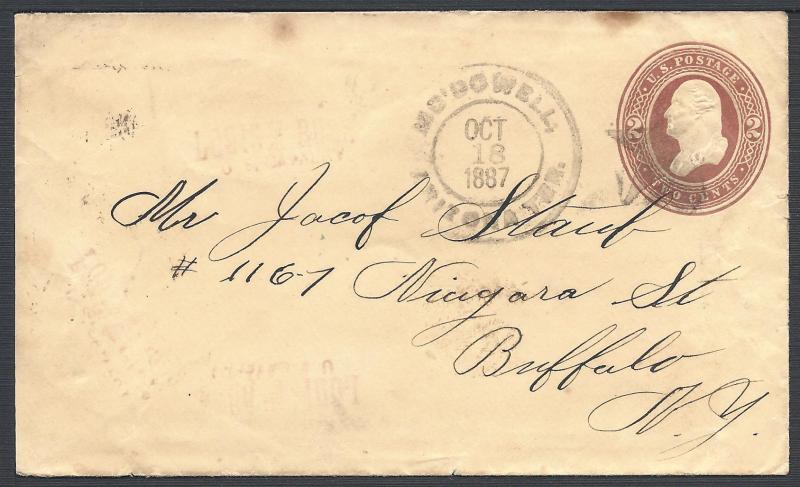 U.S. POSTAGE
2 2
TWO CENTS
McDOWELL,
OCT
18
1887
TER.
Mr Jacob Staub
# 1167
Niagara St
Buffalo
N.Y.